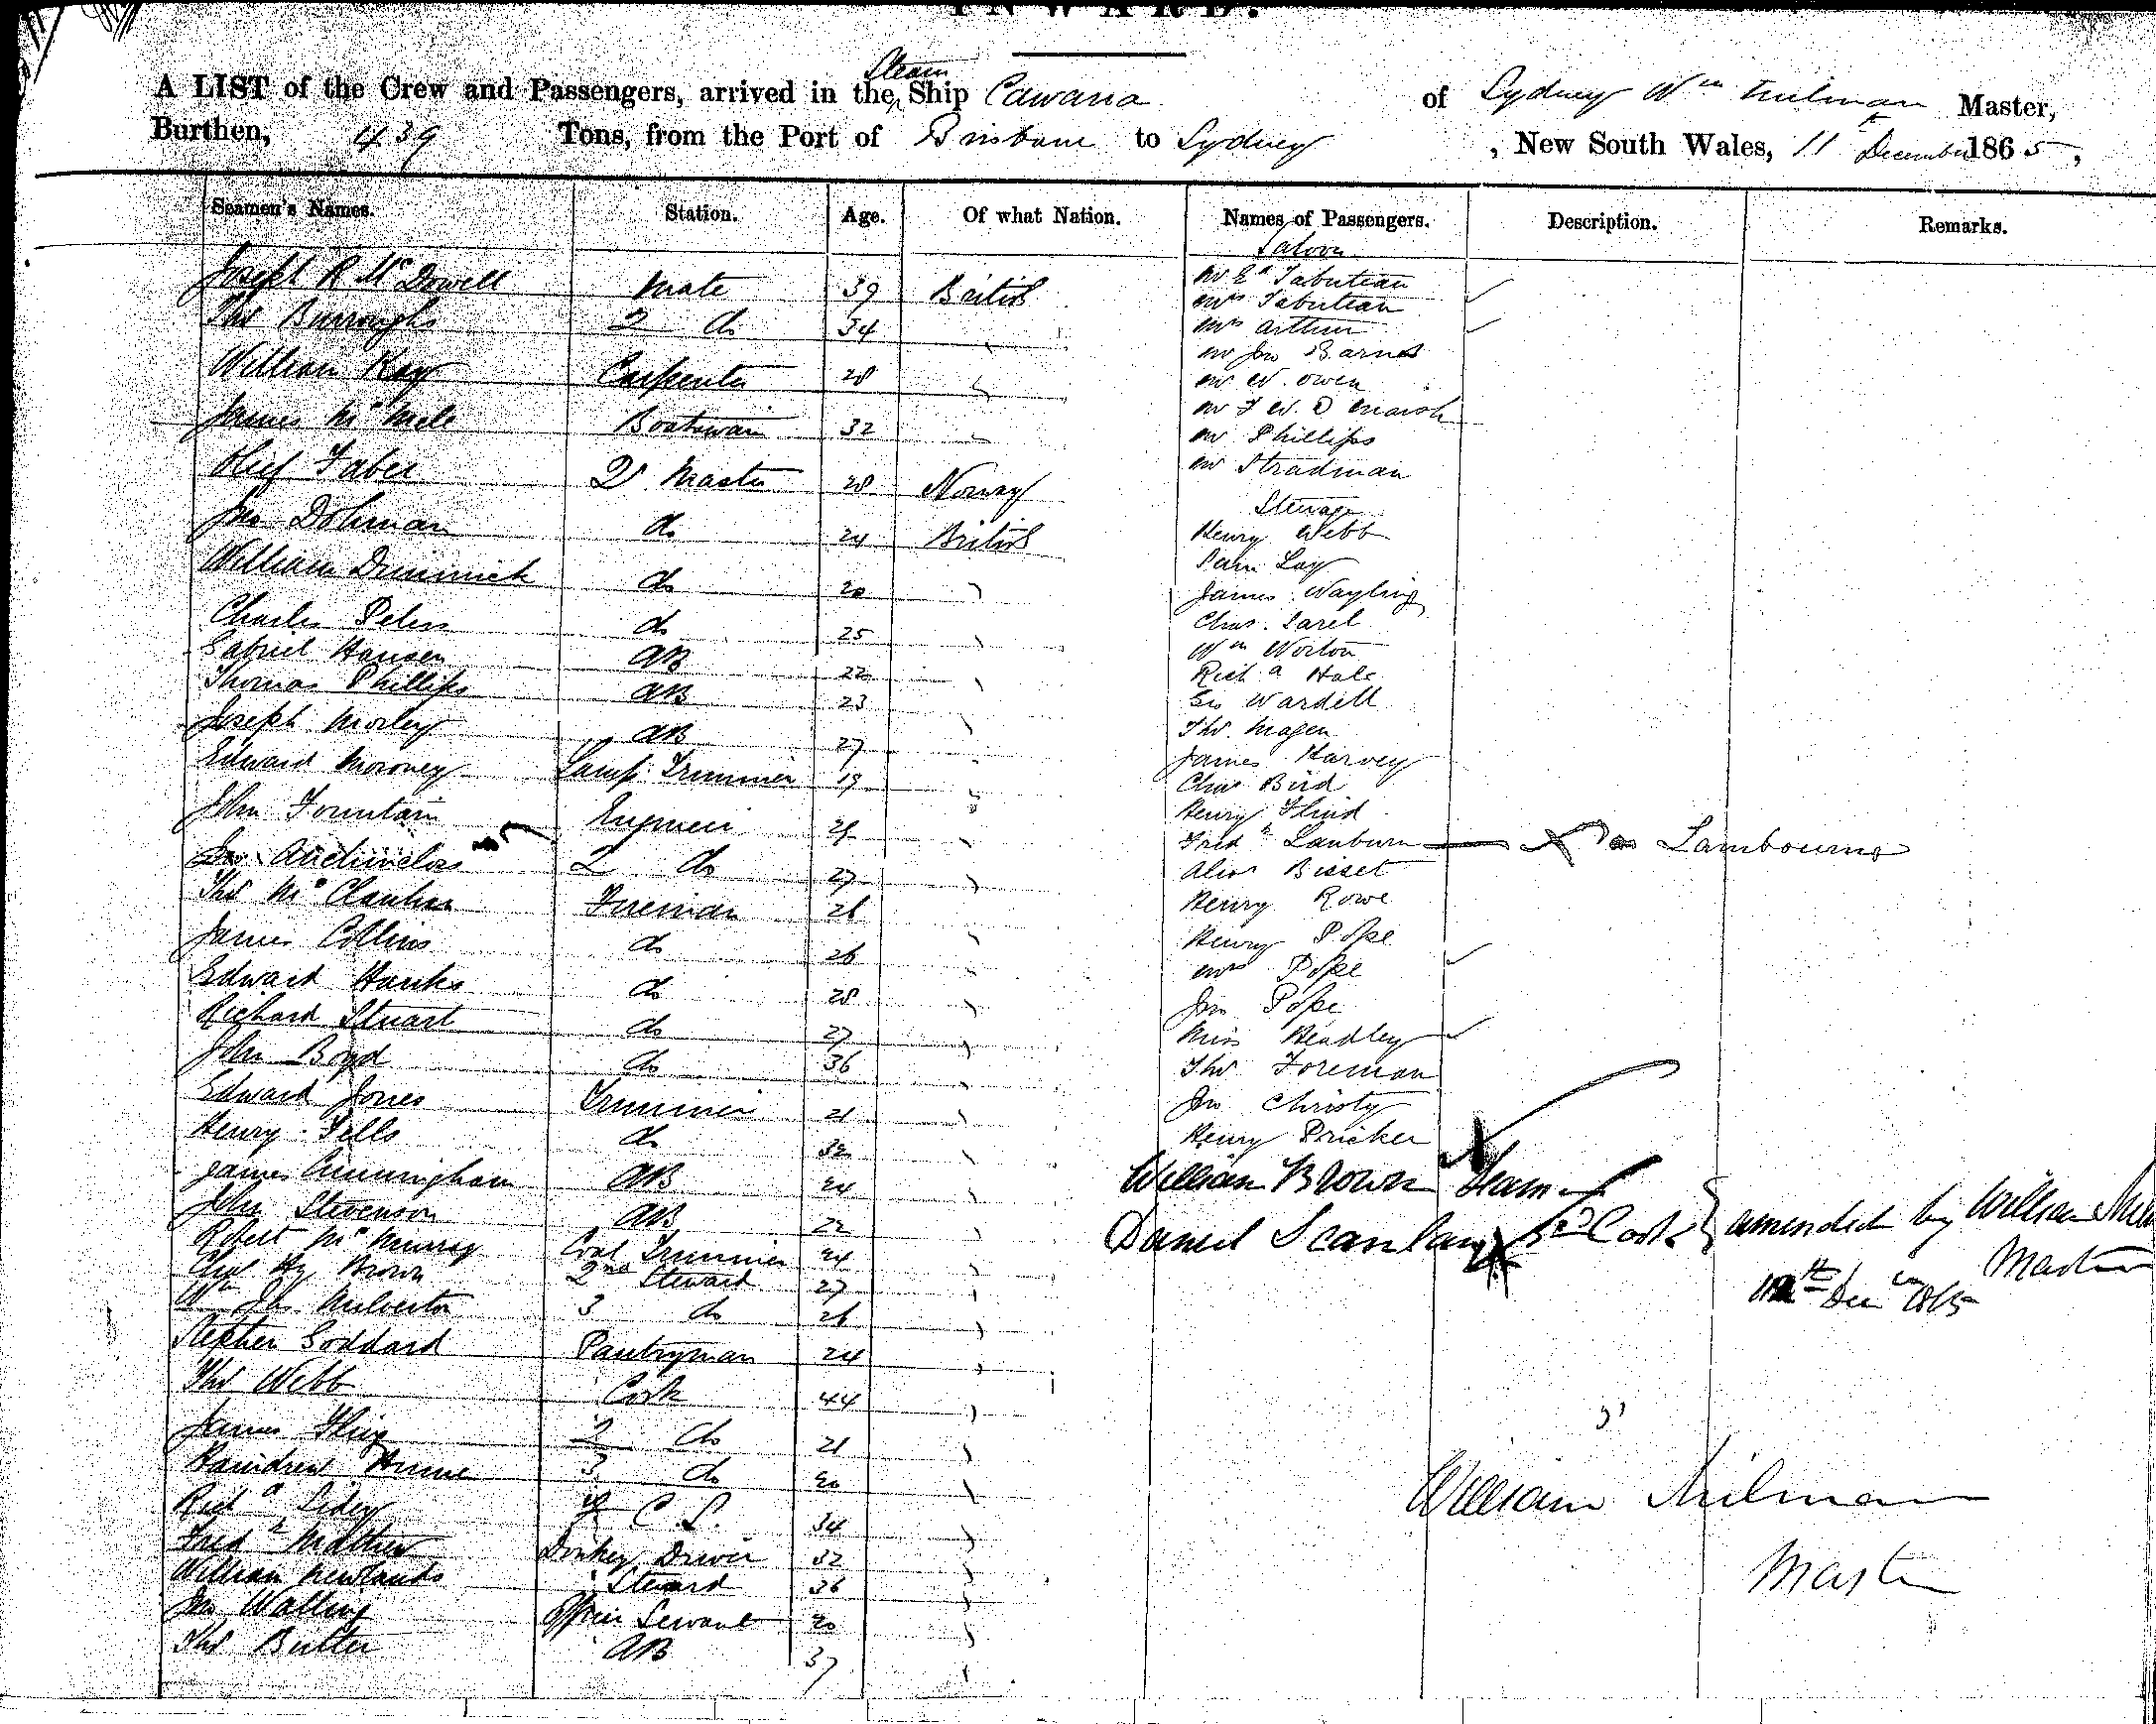 INWARD.
A LIST of the Crew and Passengers, arrived in the Steam Ship Cawarra of Sydney Wm Milman Master,
Burthen, 439 Tons, from the Port of Brisbane to Sydney , New South Wales, 11th December 1865,
Seamen's Names. Station. Age. Of what Nation. Names of Passengers. Description. Remarks.
Saloon
Joseph R McDowell Mate 39 British
Mr Ed Tabuteau
Mrs Tabuteau
Thos Burroughs 2 do 34
Mrs Arthur
Mr Jno Barnes
William Kay Carpenter 28
Mr W. Owen
Mr F W. D Marsh
James Boatswain 32
Mr Phillips
Mr Stradman
Faber Qr Master 28 Norway
Steerage
Jno Dohman do 24 British
Henry Webb
Lay
William Dimmick do 20
James Wayling
Chas.
Charles Peters do 25
Wm Norton
Gabriel Hansen AB 22
Richd Hale
Thomas Phillips AB 23
Geo Wardell
Joseph Morley AB 27
Thos. Magen
James Harvey
Edward Moroney Lamp Trimmer 19
Chas Bird
John Fountain Engineer
Henry Flind
Fredk Lanburn Lambourne
Jno Auchinclos 2 do 27
Alexr Bisset
Thos Fireman 26
Henry Rowe
James Collins do 26
Henry Pope
Mrs Pope
Edward Hanks do 28
Jno Pope
Richard Stuart do 27
Miss Headley
John Boyd do 36
Thos Foreman
Edward Jones Trimmer 21
Jno Christy
Henry Fells do 32
Henry Pricker
James Cunningham AB 24
William Brown Seaman
John Stevenson AB 22
Daniel Scanlan Cook } amended by William Milman
Robert McMurray Coal Trimmer 24
Master
Chas Hy Brown 2nd Steward 27
12th Decem 1865
Wm Jh Milverton 3 do 26
Stephen Goddard Pantryman 24
Thos Webb Cook 44
James 2 do 21
Hume 3 do 20
William Milman
Richd 34
Fredk Mathew Donkey Driver 32
Master
William Newlands Steward 36
Jno Walling Officers Servant 20
Thos Butler AB 37